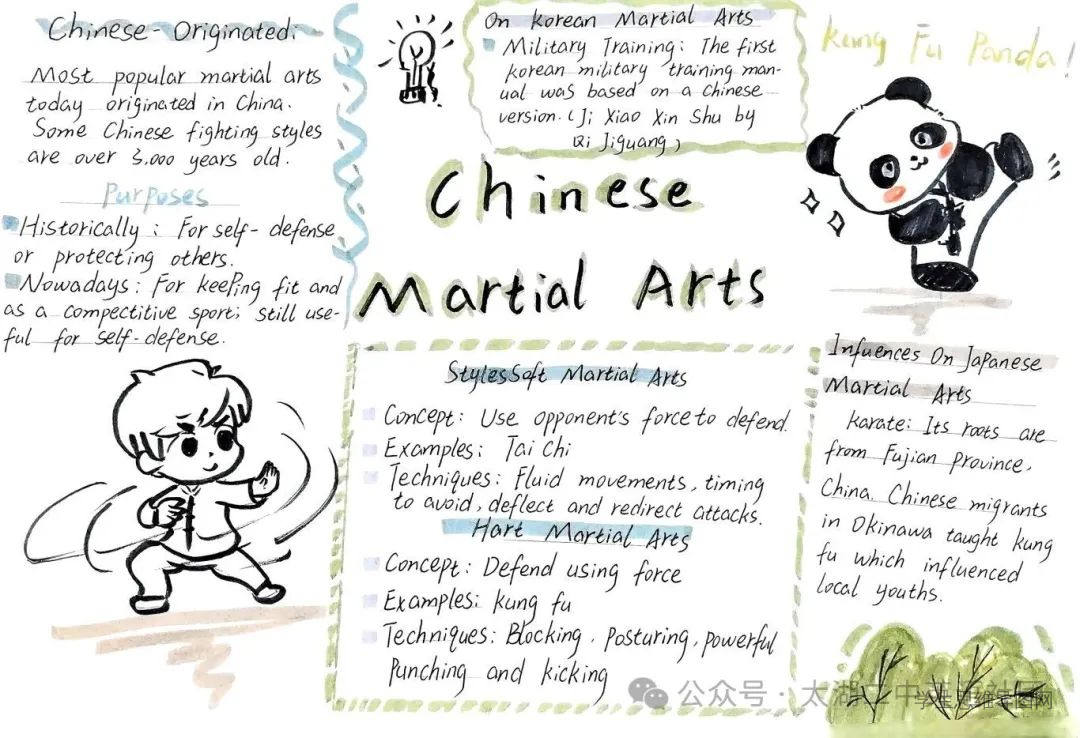 Chinese-Originated:
Most popular martial arts
today originated in China.
Some Chinese fighting styles
are over 3.000 years old.
Purposes
Historically: For self-defense
or protecting others.
Nowadays: For keePing fit and
as a compectitive sport; still use-
ful for self-defense.
On Korean Martial Arts
Military Training: The first
korean military training man-
ual was based on a Chinese
version. (Ji Xiao Xin Shu by
Qi Jiguang)
Kung Fu Panda!
Chinese
Martial Arts
StylesSoft Martial Arts
Concept: Use opponent's force to defend.
Examples: Tai Chi
Techniques: Fluid movements, timing
to avoid, deflect and redirect attacks.
Hart Martial Arts
Concept: Defend using force
Examples: kung fu
Techniques: Blocking, Posturing, powerful
Punching and kicking
Infuences On Japanese
Martial Arts
karate: Its roots are
from Fujian province,
China. Chinese migrants
in Okinawa taught kung
fu which influenced
local youths.
公众号 · 太湖二中